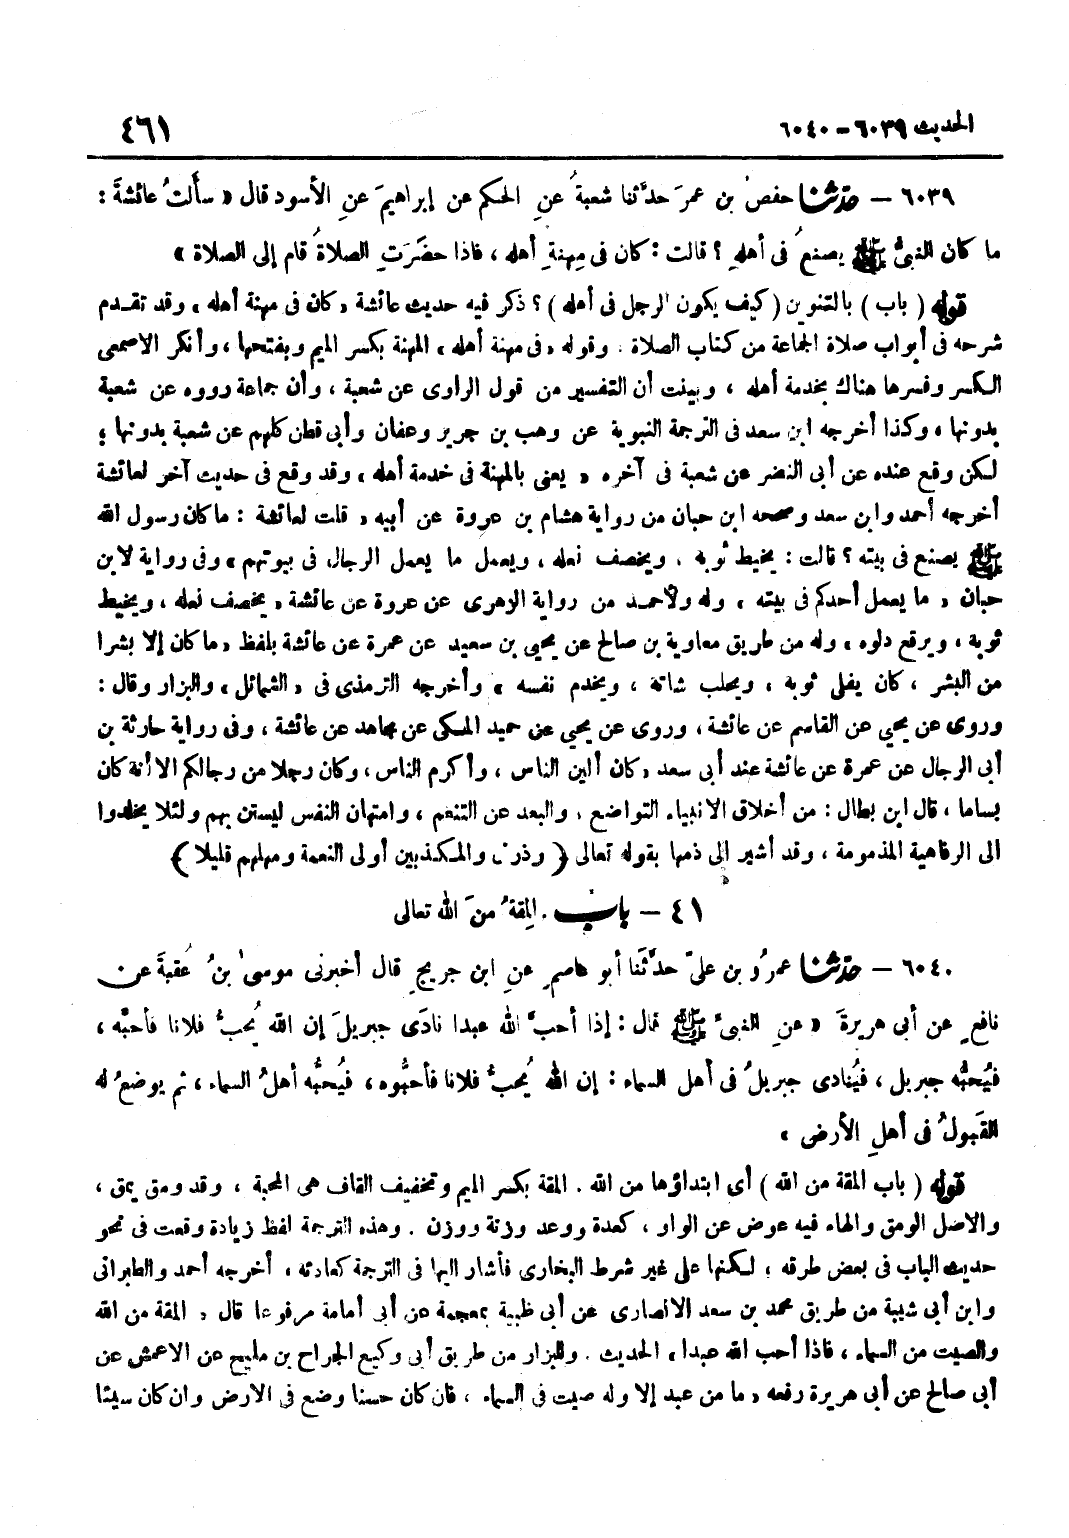 الحديث ٦٠٣٩ – ٦٠٤٠
٤٦١
٦٠٣٩ – حدثنا حفصُ بن عمرَ حدَّثنا شعبةُ عنِ الحكم عن إبراهيمَ عنِ الأسود قال « سألتُ عائشةَ :
ما كان النبيُّ ﷺ يصنعُ فى أهلهِ ؟ قالت : كان فى مِهنةِ أهله ، فاذا حضَرَتِ الصلاةُ قام إلى الصلاة »
قوله ( باب ) بالتنوين ( كيف يكون الرجل فى أهله ) ؟ ذكر فيه حديث عائشة « كان فى مهنة أهله » وقد تقدم
شرحه فى أبواب صلاة الجماعة من كتاب الصلاة . وقوله « فى مهنة أهله » المهنة بكسر الميم وبفتحها ، وأنكر الاصمعى
الكسر وفسرها هناك بخدمة أهله ، وبينت أن التفسير من قول الراوى عن شعبة ، وأن جماعة رووه عن شعبة
بدونها ، وكذا أخرجه ابن سعد فى الترجمة النبوية عن وهب بن جرير وعفان وأبى قطن كلهم عن شعبة بدونها ؛
لكن وقع عنده عن أبى النضر عن شعبة فى آخره « يعنى بالمهنة فى خدمة أهله » وقد وقع فى حديث آخر لعائشة
أخرجه أحمد وابن سعد وصححه ابن حبان من رواية هشام بن عروة عن أبيه « قلت لعائشة : ما كان رسول الله
ﷺ يصنع فى بيته ؟ قالت : يخيط ثوبه ، ويخصف نعله ، ويعمل ما يعمل الرجال فى بيوتهم » وفى رواية لابن
حبان « ما يعمل أحدكم فى بيته » وله ولأحمد من رواية الزهرى عن عروة عن عائشة « يخصف نعله ، ويخيط
ثوبه ، ويرقع دلوه » وله من طريق معاوية بن صالح عن يحيى بن سعيد عن عمرة عن عائشة بلفظ « ما كان إلا بشرا
من البشر ، كان يفلى ثوبه ، ويحلب شاته ، ويخدم نفسه » وأخرجه الترمذى فى « الشمائل » والبزار وقال :
وروى عن يحيى عن القاسم عن عائشة ، وروى عن يحيى عن حميد المكى عن مجاهد عن عائشة ، وفى رواية حارثة بن
أبى الرجال عن عمرة عن عائشة عند أبى سعد « كان ألين الناس ، وأكرم الناس ، وكان رجلا من رجالكم الا أنه كان
بساما ، قال ابن بطال : من أخلاق الانبياء التواضع ، والبعد عن التنعم ، وامتهان النفس ليستن بهم ولئلا يخلدوا
الى الرفاهية المذمومة ، وقد أشير إلى ذمها بقوله تعالى ﴿ وذرنى والمكذبين أولى النعمة ومهلهم قليلا ﴾
٤١ – باب . المِقةُ منَ الله تعالى
٦٠٤٠ – حدثنا عمرُو بن علىّ حدَّثَنا أبو عاصمٍ عنِ ابن جريجٍ قال أخبرنى موسىٰ بنُ عُقبةَ عن
نافعٍ عن أبى هريرةَ « عنِ النبىِّ ﷺ قال : إذا أحبَّ الله عبدا نادَى جبريلَ إن الله يُحبُّ فلانا فأحبَّه ،
فيُحبُّه جبريل ، فيُنادى جبريلُ فى أهل السماء : إن الله يُحبُّ فلانا فأحبُّوه ، فيُحبُّه أهلُ السماء ، ثم يوضعُ له
القَبولُ فى أهلِ الأرض »
قوله ( باب المقة من الله ) أى ابتداؤها من الله . المقة بكسر الميم وتخفيف القاف هى المحبة ، وقد ومق يمق ،
والاصل الومق والهاء فيه عوض عن الواو ، كعدة ووعد وزنة ووزن . وهذه الترجمة لفظ زيادة وقعت فى نحو
حديث الباب فى بعض طرقه ، لكنها على غير شرط البخارى فأشار اليها فى الترجمة كعادته ، أخرجه أحمد والطبرانى
وابن أبى شيبة من طريق محمد بن سعد الانصارى عن أبى ظبية بمعجمة عن أبى أمامة مرفوعا قال « المقة من الله
والصيت من السماء ، فاذا أحب الله عبدا » الحديث . وللبزار من طريق أبى وكيع الجراح بن مليح عن الاعمش عن
أبى صالح عن أبى هريرة رفعه « ما من عبد إلا وله صيت فى السماء ، فان كان حسنا وضع فى الارض وان كان سيئا